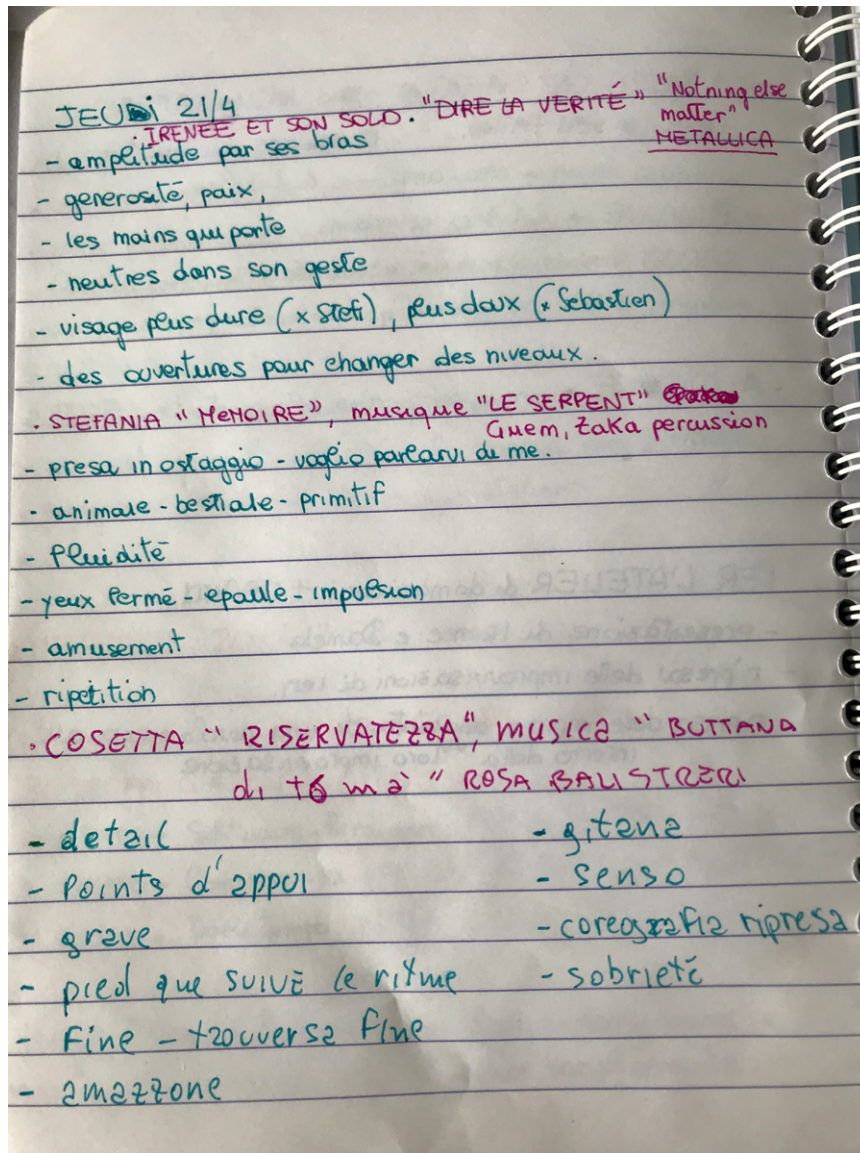 JEUDi 21/4
. IRENEE ET SON SOLO. "DIRE LA VERITÉ" "Notning else
matter"
METALLICA
- amplitude par ses bras
- generosité, paix,
- les mains qui porte
- neutres dans son geste
- visage plus dure (x Stefi), plus doux (x Sebastien)
- des ouvertures pour changer des niveaux.
. STEFANIA "MEMOIRE", musique "LE SERPENT"
Guem, Zaka percussion
- presa in ostaggio - voglio parlarvi di me.
- animale - bestiale - primitif
- fluidité
- yeux fermé - epaule - impulsion
- amusement
- ripetition
. COSETTA "RISERVATEZZA", musica "BUTTANA
di to mà" ROSA BALISTRERI
- detail
- points d'appui
- grave
- pied que suive le ritme
- Fine - trouversa fine
- amazzone
- gitana
- senso
- coregrafia ripresa
- sobrieté